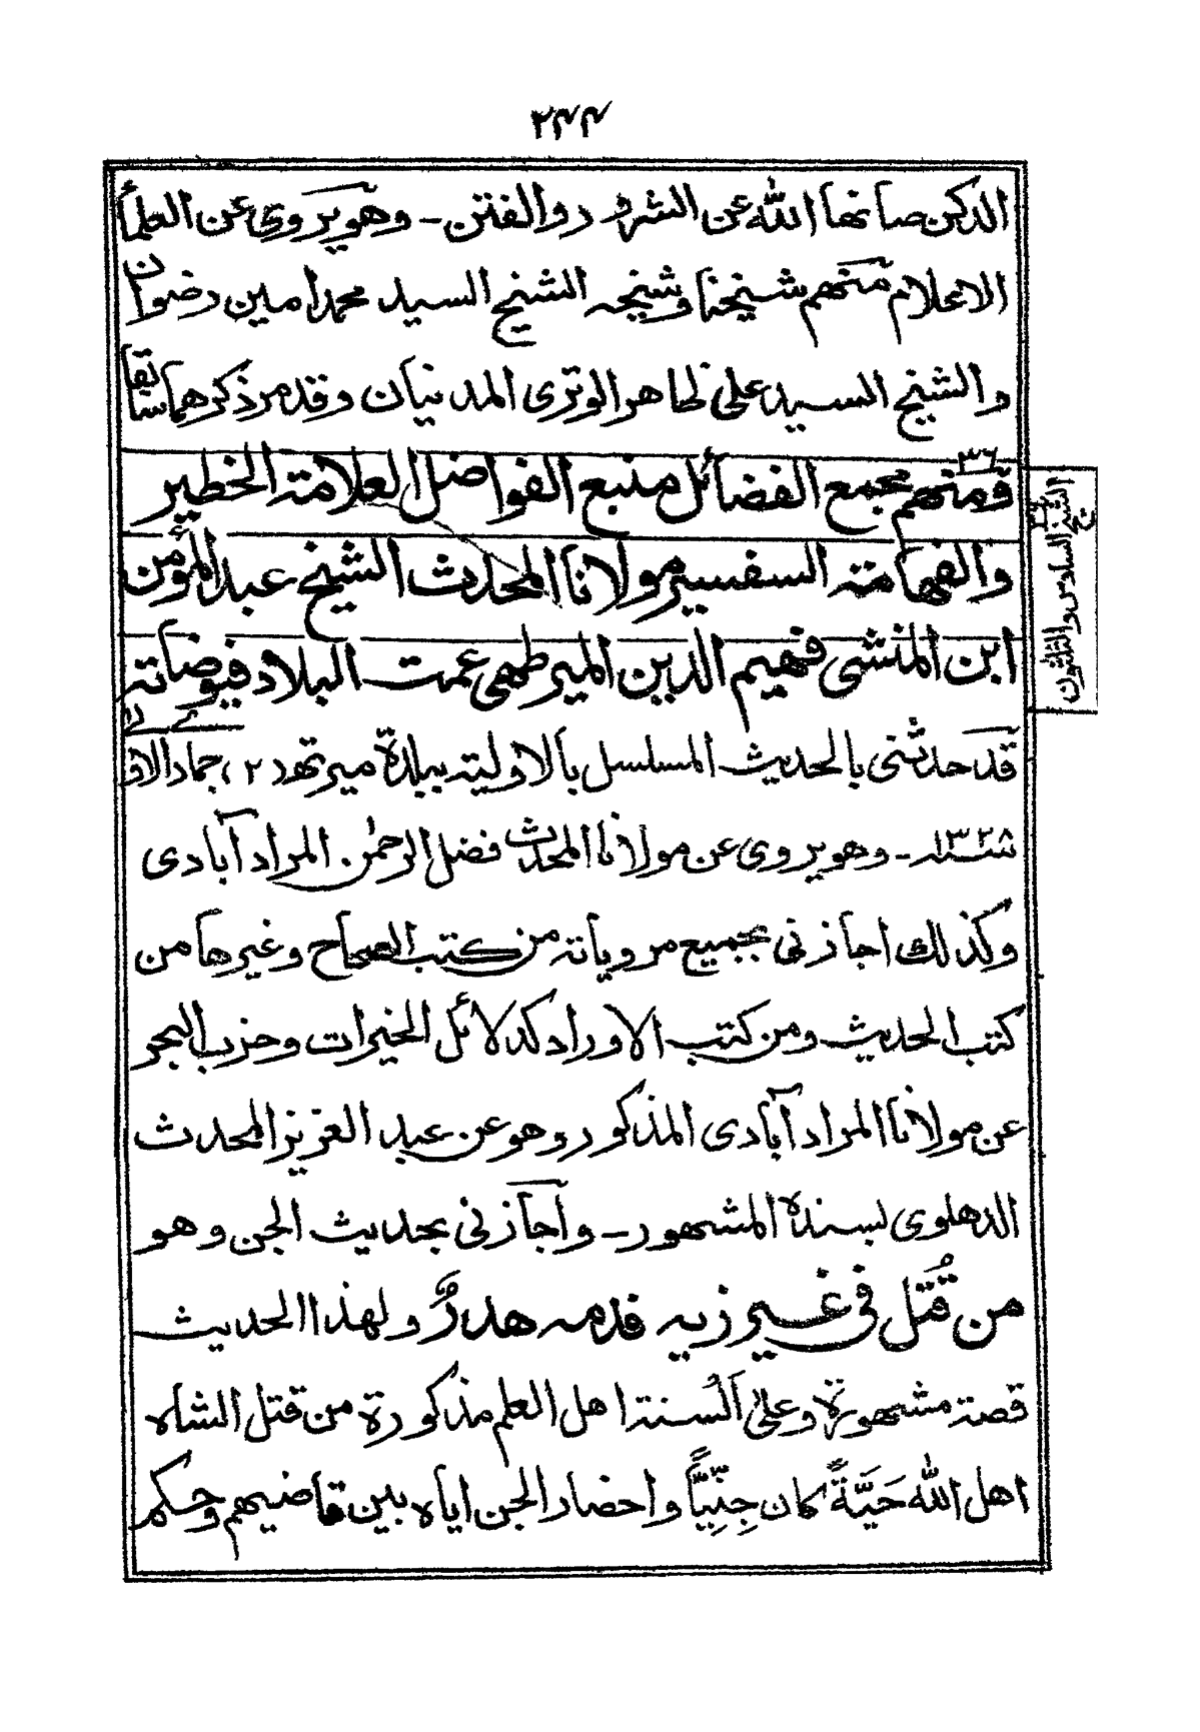 ۲۴۴
الدكن صانها الله عن الشرور والفتن ـ وهو يروى عن العلمأ
الاعلام منهم شيخنا وشيخه الشيخ السيد محمد امين رضوان
والشيخ السيد على ظاهر الوترى المدنيان وقد مر ذكرهما سابقا
ومنهم مجمع الفضائل منبع الفواضل العلامة الخطير
۳۶
الشيخ السادس والثلثون
والفهامة السفسير مولانا المحدث الشيخ عبد المؤمن
ابن المنشى فهيم الدين الميرطهى عمت البلاد فيوضاته
قد حدثنى بالحديث المسلسل بالاولية ببلدة ميرتهه
۱۳۲۸ ـ وهو يروى عن مولانا المحدث فضل الرحمٰن المراد آبادى
وكذلك اجازنى بجميع مروياته من كتب الصحاح وغيرها من
كتب الحديث ومن كتب الاوراد كدلائل الخيرات وحزب البحر
عن مولانا المراد آبادى المذكور وهو عن عبد العزيز المحدث
الدهلوى بسنده المشهور ـ وأجازنى بحديث الجن وهو
من قُتل فى غير زيه فدمه هدرٌ ولهذا الحديث
قصة مشهورة وعلى ألسنة اهل العلم مذكورة من قتل الشاه
اهل الله حَيَّةً كان جِنِّيًّا واحضار الجن اياه بين قاضيهم وحكم